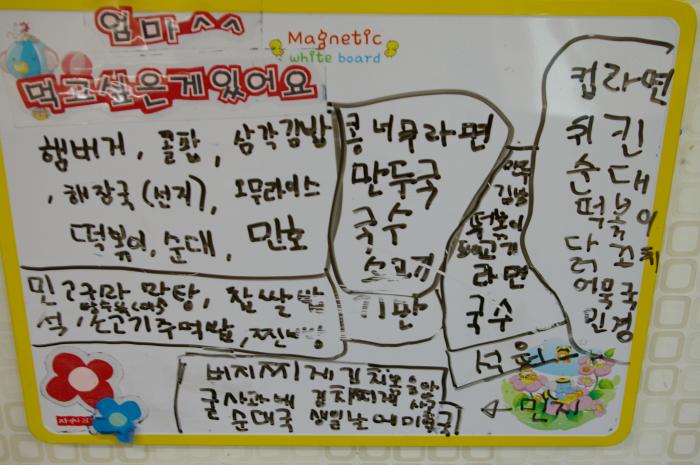 엄마^^
먹고싶은게있어요
Magnetic
white board
햄버거, 콜팝, 삼각김밥
, 해장국(선지), 오무라이스
떡볶이, 순대, 민호
콩너무라면
만두국
국수
소고기
기만
김밥
떡볶이
고기
라면
국수
석
컵라면
취킨
순대
떡볶이
닭꼬치
어묵국
민경
민 고구마 맛탕, 찹쌀밥
석, 소고기주먹밥, 찐빵
버지찌개김치
김치찌개
순대국 생일날에미역국
민지